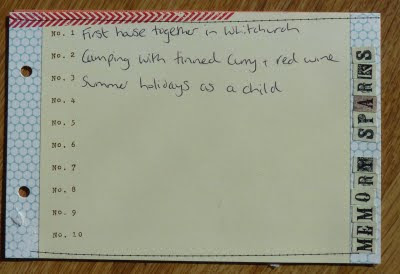 No. 1 First house together in Whitchurch
No. 2 Camping with tinned curry + red wine
No. 3 Summer holidays as a child
No. 4
No. 5
No. 6
No. 7
No. 8
No. 9
No. 10
MEMORY SPARKS